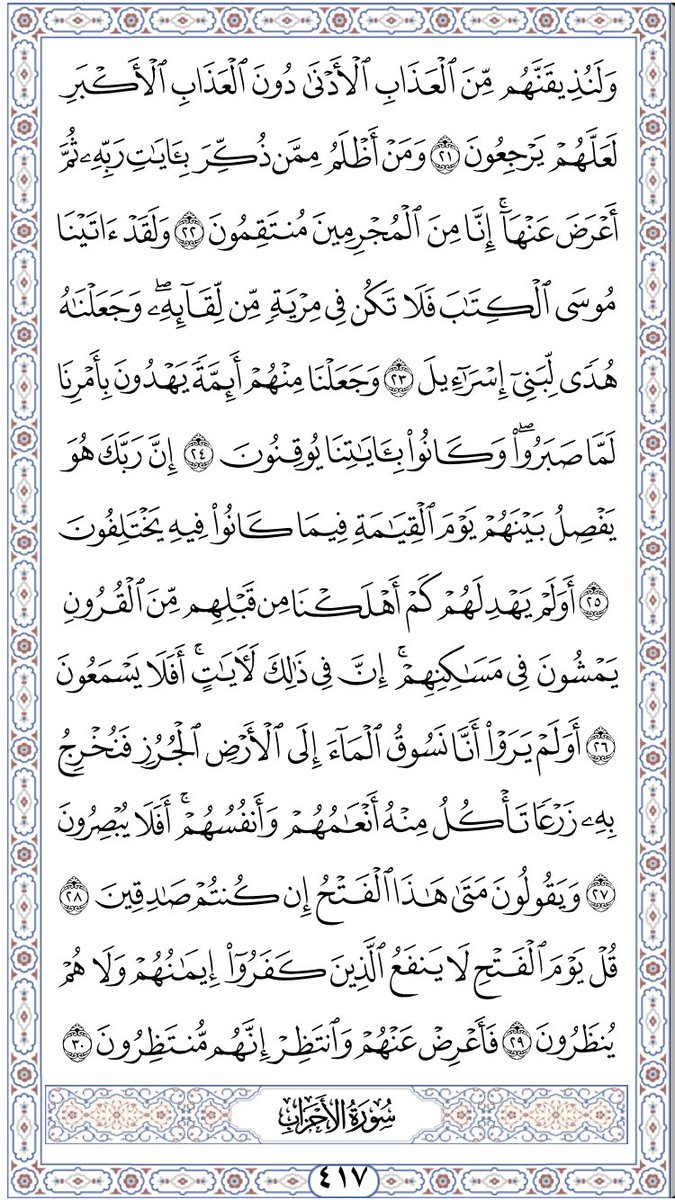 وَلَنُذِيقَنَّهُم مِّنَ ٱلْعَذَابِ ٱلْأَدْنَىٰ دُونَ ٱلْعَذَابِ ٱلْأَكْبَرِ
لَعَلَّهُمْ يَرْجِعُونَ ٢١ وَمَنْ أَظْلَمُ مِمَّن ذُكِّرَ بِـَٔايَـٰتِ رَبِّهِۦ ثُمَّ
أَعْرَضَ عَنْهَآ ۚ إِنَّا مِنَ ٱلْمُجْرِمِينَ مُنتَقِمُونَ ٢٢ وَلَقَدْ ءَاتَيْنَا
مُوسَى ٱلْكِتَـٰبَ فَلَا تَكُن فِى مِرْيَةٍ مِّن لِّقَآئِهِۦ ۖ وَجَعَلْنَـٰهُ
هُدًى لِّبَنِىٓ إِسْرَٰٓءِيلَ ٢٣ وَجَعَلْنَا مِنْهُمْ أَئِمَّةً يَهْدُونَ بِأَمْرِنَا
لَمَّا صَبَرُوا۟ ۖ وَكَانُوا۟ بِـَٔايَـٰتِنَا يُوقِنُونَ ٢٤ إِنَّ رَبَّكَ هُوَ
يَفْصِلُ بَيْنَهُمْ يَوْمَ ٱلْقِيَـٰمَةِ فِيمَا كَانُوا۟ فِيهِ يَخْتَلِفُونَ
٢٥ أَوَلَمْ يَهْدِ لَهُمْ كَمْ أَهْلَكْنَا مِن قَبْلِهِم مِّنَ ٱلْقُرُونِ
يَمْشُونَ فِى مَسَـٰكِنِهِمْ ۚ إِنَّ فِى ذَٰلِكَ لَـَٔايَـٰتٍ ۖ أَفَلَا يَسْمَعُونَ
٢٦ أَوَلَمْ يَرَوْا۟ أَنَّا نَسُوقُ ٱلْمَآءَ إِلَى ٱلْأَرْضِ ٱلْجُرُزِ فَنُخْرِجُ
بِهِۦ زَرْعًا تَأْكُلُ مِنْهُ أَنْعَـٰمُهُمْ وَأَنفُسُهُمْ ۚ أَفَلَا يُبْصِرُونَ
٢٧ وَيَقُولُونَ مَتَىٰ هَـٰذَا ٱلْفَتْحُ إِن كُنتُمْ صَـٰدِقِينَ ٢٨
قُلْ يَوْمَ ٱلْفَتْحِ لَا يَنفَعُ ٱلَّذِينَ كَفَرُوٓا۟ إِيمَـٰنُهُمْ وَلَا هُمْ
يُنظَرُونَ ٢٩ فَأَعْرِضْ عَنْهُمْ وَٱنتَظِرْ إِنَّهُم مُّنتَظِرُونَ ٣٠
سُورَةُ الأَحْزَابِ
٤١٧